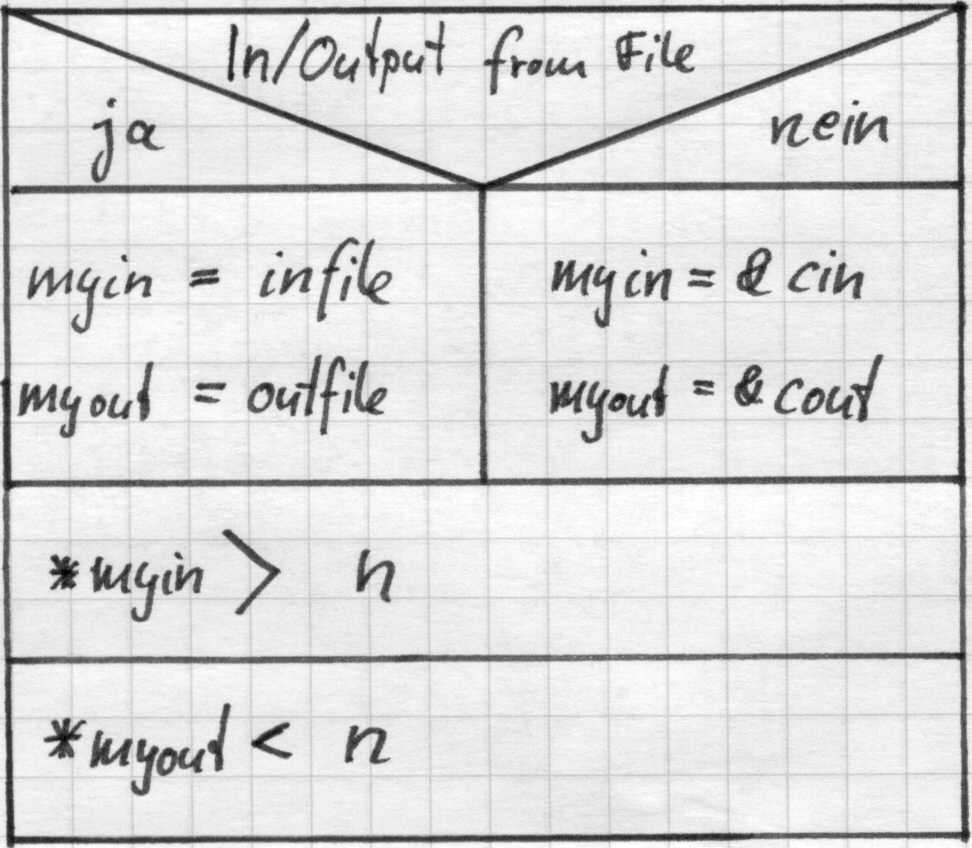 In/Output from File
ja nein
myin = infile myin = & cin
myout = outfile myout = & cout
*myin > n
*myout < n